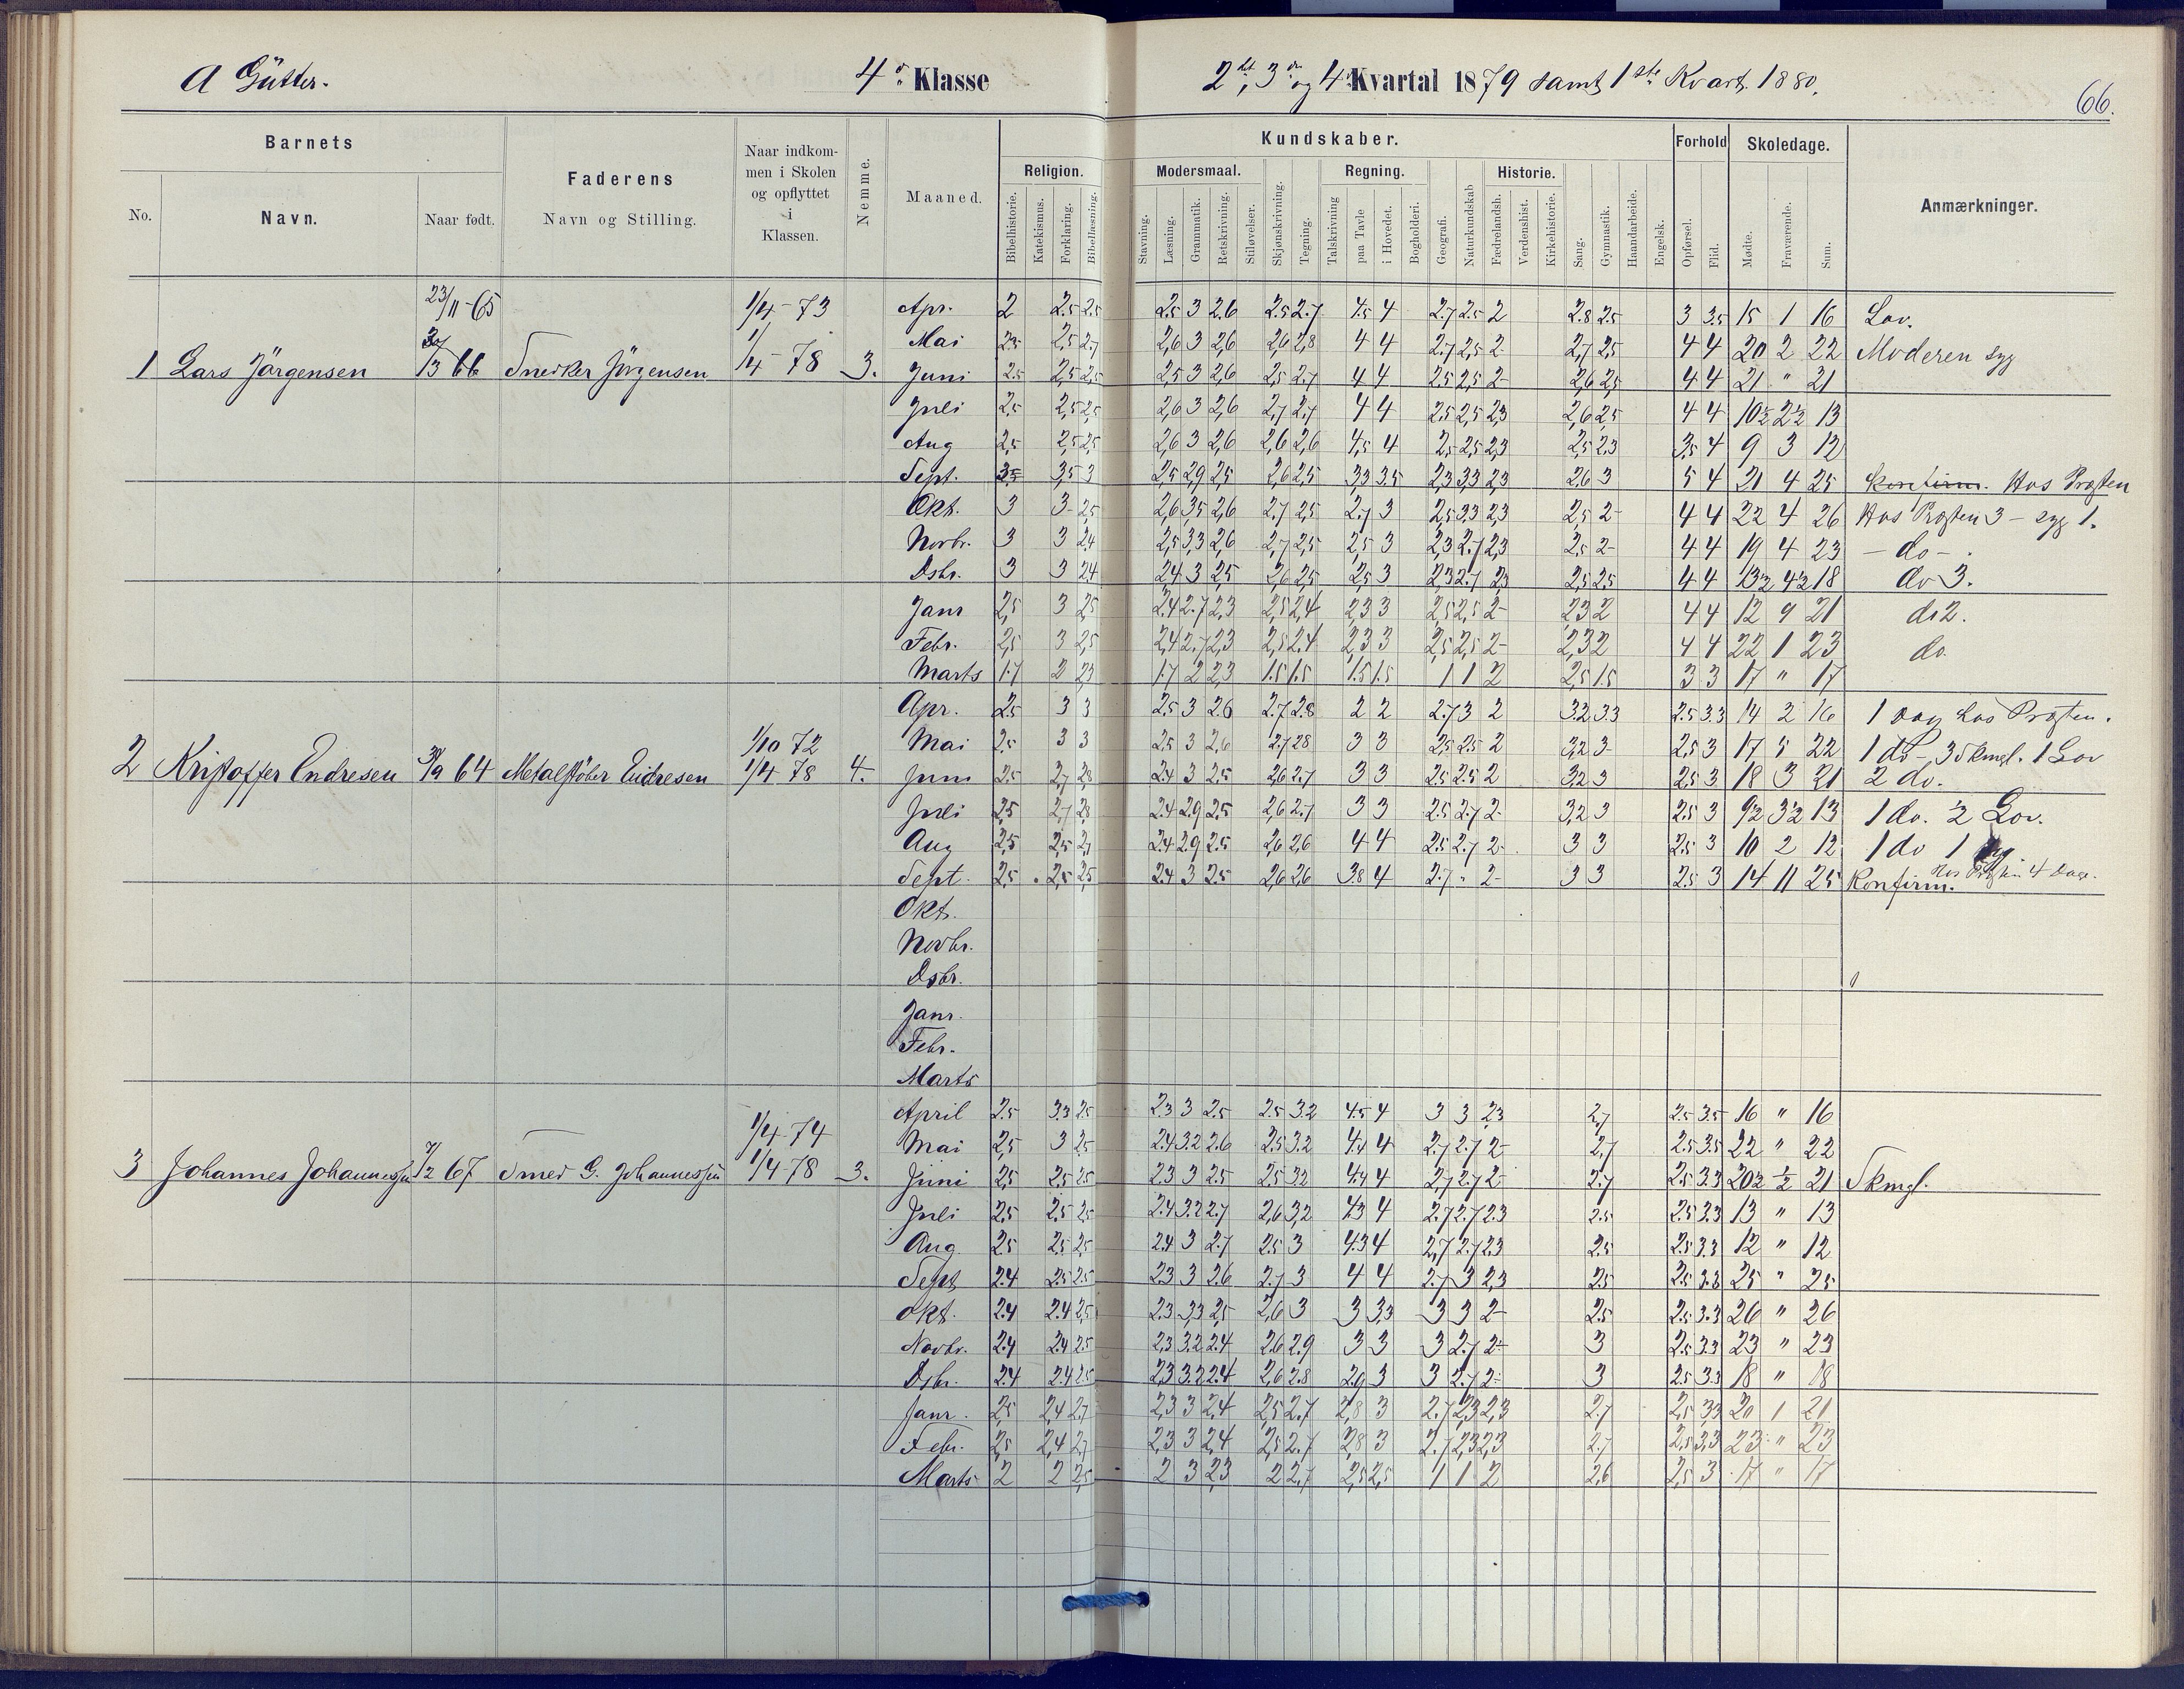 A Gutter. 4de Klasse 2det, 3die og 4de Kvartal 1879 samt 1ste Kvart. 1880.
66.
Barnets
Faderens
Naar indkommen i Skolen og opflyttet i Klassen.
Nemme.
Maaned.
Kundskaber.
Forhold
Skoledage.
Anmærkninger.
No. Navn. Naar født. Navn og Stilling.
Religion. Modersmaal. Regning. Historie.
Bibelhistorie. Katekismus. Forklaring. Bibellæsning. Stavning. Læsning. Grammatik. Retskrivning. Stiløvelser. Skjønskrivning. Tegning. Talskrivning paa Tavle i Hovedet. Bogholderi. Geografi. Naturkundskab Fædrelandsh. Verdenshist. Kirkehistorie. Sang. Gymnastik. Haandarbeide. Engelsk. Opførsel. Flid. Mødte. Fraværende. Sum.
23/11-65 1/4-73 Apr. 2 2.5 2.5 2.5 3 2.6 2.5 2.7 4.5 4 2.7 2.5 2 2.8 2.5 3 3.5 15 1 16 Lov.
Mai 2.5 2,5 2,7 2,6 3 2,6 2,6 2,8 4 4 2.7 2,5 2 2,7 2,5 4 4 20 2 22 Moderen syg
1 Lars Jörgensen 66 Snedker Jörgensen 1/4-78 3. Juni 2.5 2,5 2,5 2,5 3 2,6 2,5 2.7 4 4 2.5 2,5 2 2,6 2,5 4 4 21 " 21
Juli 2,5 2,5 2,5 2,6 3 2,6 2,7 2.7 4 4 2.5 2,5 2,3 2,6 2,5 4 4 10½ 2½ 13
Aug 2,5 2,5 2,5 2,6 3 2,6 2,6 2,6 4,5 4 2,5 2,5 2,3 2,5 2,3 3,5 4 9 3 12
Sept. 3,5 3 2,5 2,9 2,5 2,6 2,5 3,3 3.5 2,3 3,3 2,3 2,6 3 5 4 21 4 25 Konfirm. Hos Præsten
Okt. 3 3 2,5 2,6 3,5 2,6 2.7 2,5 2.7 3 2,5 3.3 2,3 2,5 2 4 4 22 4 26 Hos Præsten 3 - syg 1.
Novbr. 3 3 2,4 2,5 3,3 2,6 2,7 2,5 2,5 3 2,3 2.7 2,3 2,5 2 4 4 19 4 23 - do -
Dsbr. 3 3 2,4 2,4 3 2,5 2,6 2,5 2,5 3 2,3 2.7 2,3 2,5 2,5 4 4 13½ 4½ 18 do 3.
Janr 2,5 3 2,5 2.4 2.7 2,3 2,5 2,4 2,3 3 2,5 2,5 2 2,3 2 4 4 12 9 21 do 2.
Febr. 2,5 3 2,5 2,4 2.7 2,3 2,5 2.4 2,3 3 2,5 2,5 2 2,3 2 4 4 22 1 23 do
Marts 1.7 2 2,3 1.7 2 2,3 1.5 1.5 1.5 1.5 1 1 2 2,5 1.5 3 3 17 " 17
Apr. 2.5 3 3 2.5 3 2.6 2.7 2.8 2 2 2.7 3 2 3.2 3.3 2.5 3.3 14 2 16 1 Dag hos Præsten.
1/10 72 Mai 2.5 3 3 2.5 3 2,6 2.7 2.8 3 3 2.5 2.5 2 3,2 3 2,5 3 17 5 22 1 do 3 Skmgl. 1 Lov
2 Kristoffer Endresen 64 Metalstöber Endresen 1/4 78 4. Juni 2.5 2,7 2,8 2.4 3 2.5 2,6 2.7 3 3 2.5 2.5 2 3,2 3 2.5 3 18 3 21 2 do.
Juli 2,5 2,7 2,8 2.4 2.9 2.5 2,6 2.7 3 3 2.5 2.7 2 3,2 3 2.5 3 9½ 3½ 13 1 do. ½ Lov.
Aug 2,5 2,5 2,7 2.4 2.9 2.5 2,6 2,6 4 4 2.5 2.7 2 3 3 2.5 3 10 2 12 1 do 1 syg
Sept. 2,5 2,5 2,5 2.4 3 2.5 2,6 2,6 3.8 4 2.7 " 2 3 3 2.5 3 14 11 25 Konfirm. Hos Præsten 4 Dage.
Okt.
Novbr.
Dsbr.
Janr.
Febr.
Marts
April 2.5 3.3 2.5 2.3 3 2.5 2.5 3.2 4.5 4 3 3 2,3 2,7 2.5 3.5 16 " 16
1/4-74 Mai 2,5 3 2,5 2.4 3.2 2.6 2.5 3.2 4.4 4 2.7 2.7 2 2,7 2.5 3.5 22 " 22
3 Johannes Johannessen 7/2 67. Smed G. Johannessen 1/4-78 3. Juni 2,5 2.5 2.5 2.3 3 2.5 2.5 3.2 4.4 4 2,7 2.7 2 2.7 2.5 3.3 20½ ½ 21 Skmgl.
Juli 2.5 2.5 2.5 2.4 3.2 2.7 2,6 3,2 4.3 4 2.7 2.7 2.3 2.5 2.5 3.3 13 " 13
Aug. 2.5 2.5 2.5 2.4 3 2.7 2.5 3 4.3 4 2,7 2.7 2.3 2.5 2.5 3.3 12 " 12
Sept 2.4 2.5 2.5 2.3 3 2.6 2.7 3 4 4 2.7 3 2,3 2.5 2.5 3.3 25 " 25
Okt. 2.4 2.4 2,5 2.3 3,3 2,5 2,6 3 3 3,3 3 3 2 2.5 2.5 3.3 26 " 26
Novbr. 2.4 2.4 2.5 2,3 3.2 2.4 2.6 2.9 3 3 3 2.7 2 3 2.5 3.3 23 " 23
Dsbr. 2.4 2.4 2.5 2,3 3.2 2.4 2,6 2.8 2.9 3 3 2.7 2 3 2.5 3.3 18 " 18
Janr. 2,5 2,4 2.7 2,3 3 2,4 2,5 2.7 2,8 3 2.7 2,3 2,3 2.7 2,5 3,3 20 1 21
Febr. 2,5 2,4 2,7 2,3 3 2,4 2,5 2.7 2,8 3 2.7 2,3 2,3 2.7 2,5 3,3 23 " 23
Marts 2 2 2,5 2 3 2,3 2 2.7 2,5 2,5 1 1 2 2,6 2,5 3 17 " 17